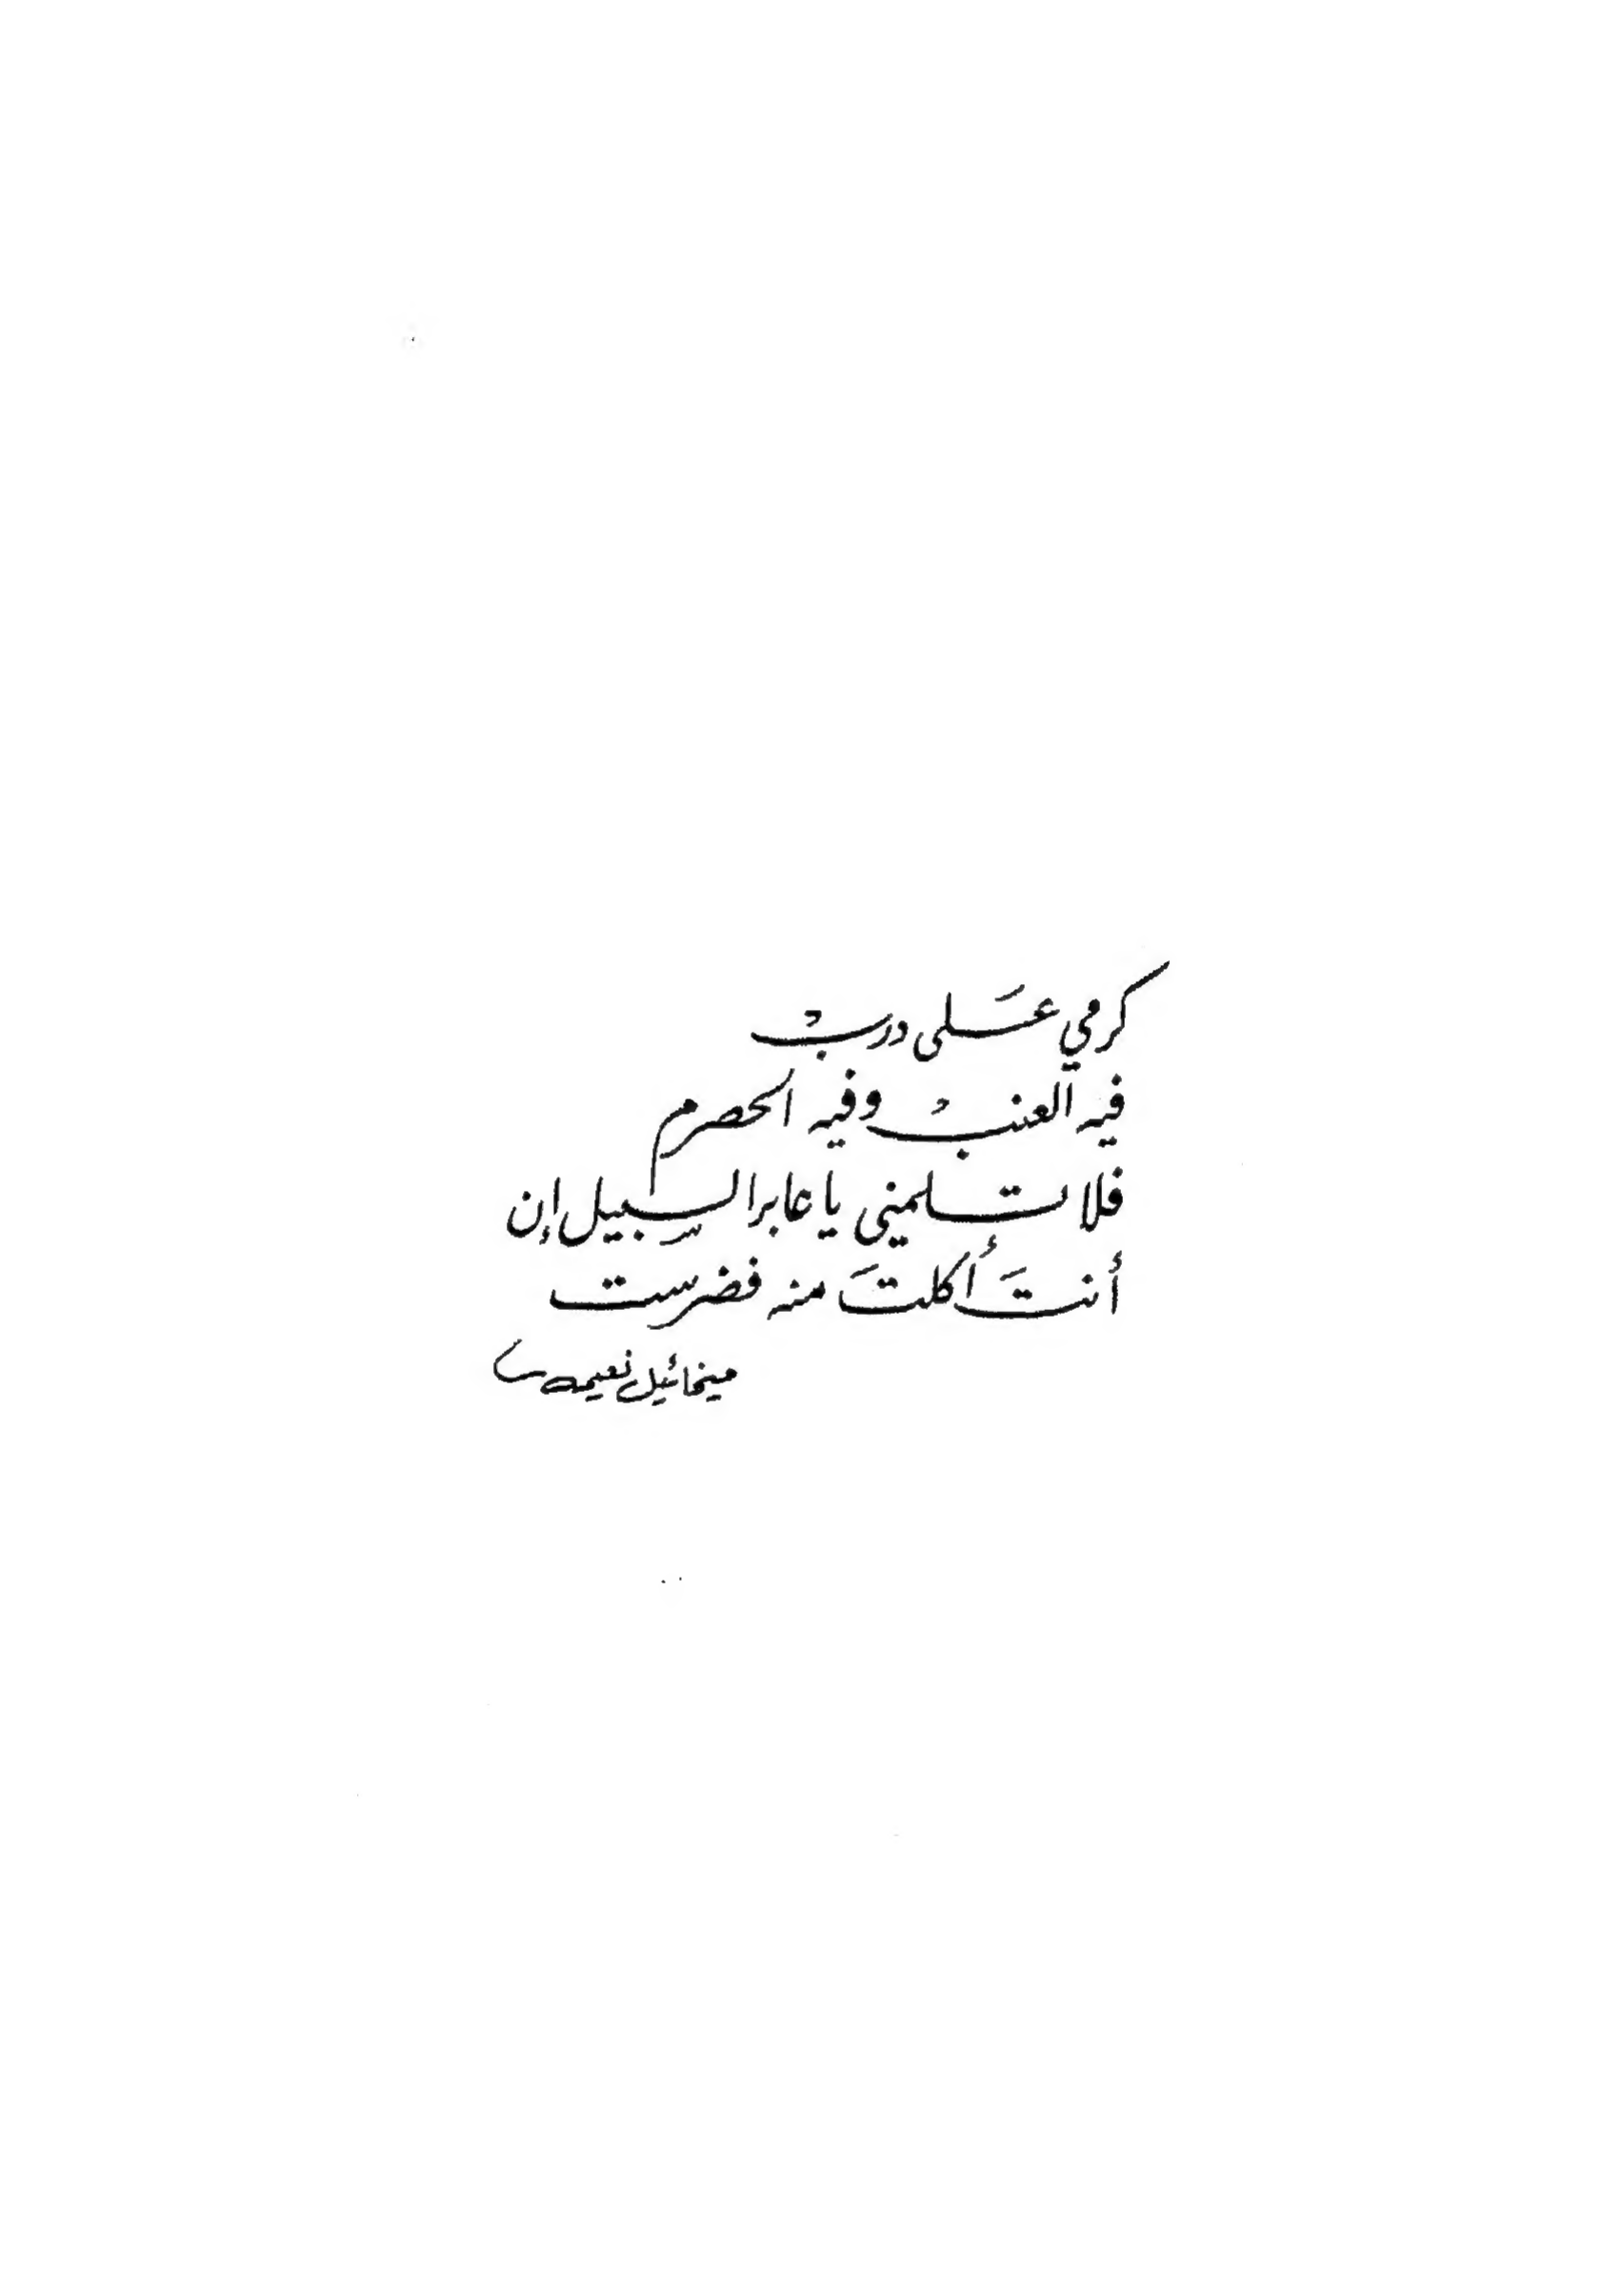 كرمي عَلى دربْ
فيه العنبْ وفيه الحصرم
فلا تلمني يا عابر السبيل إن
أنتَ أكلتَ منه فضرست
ميخائيل نعيمه